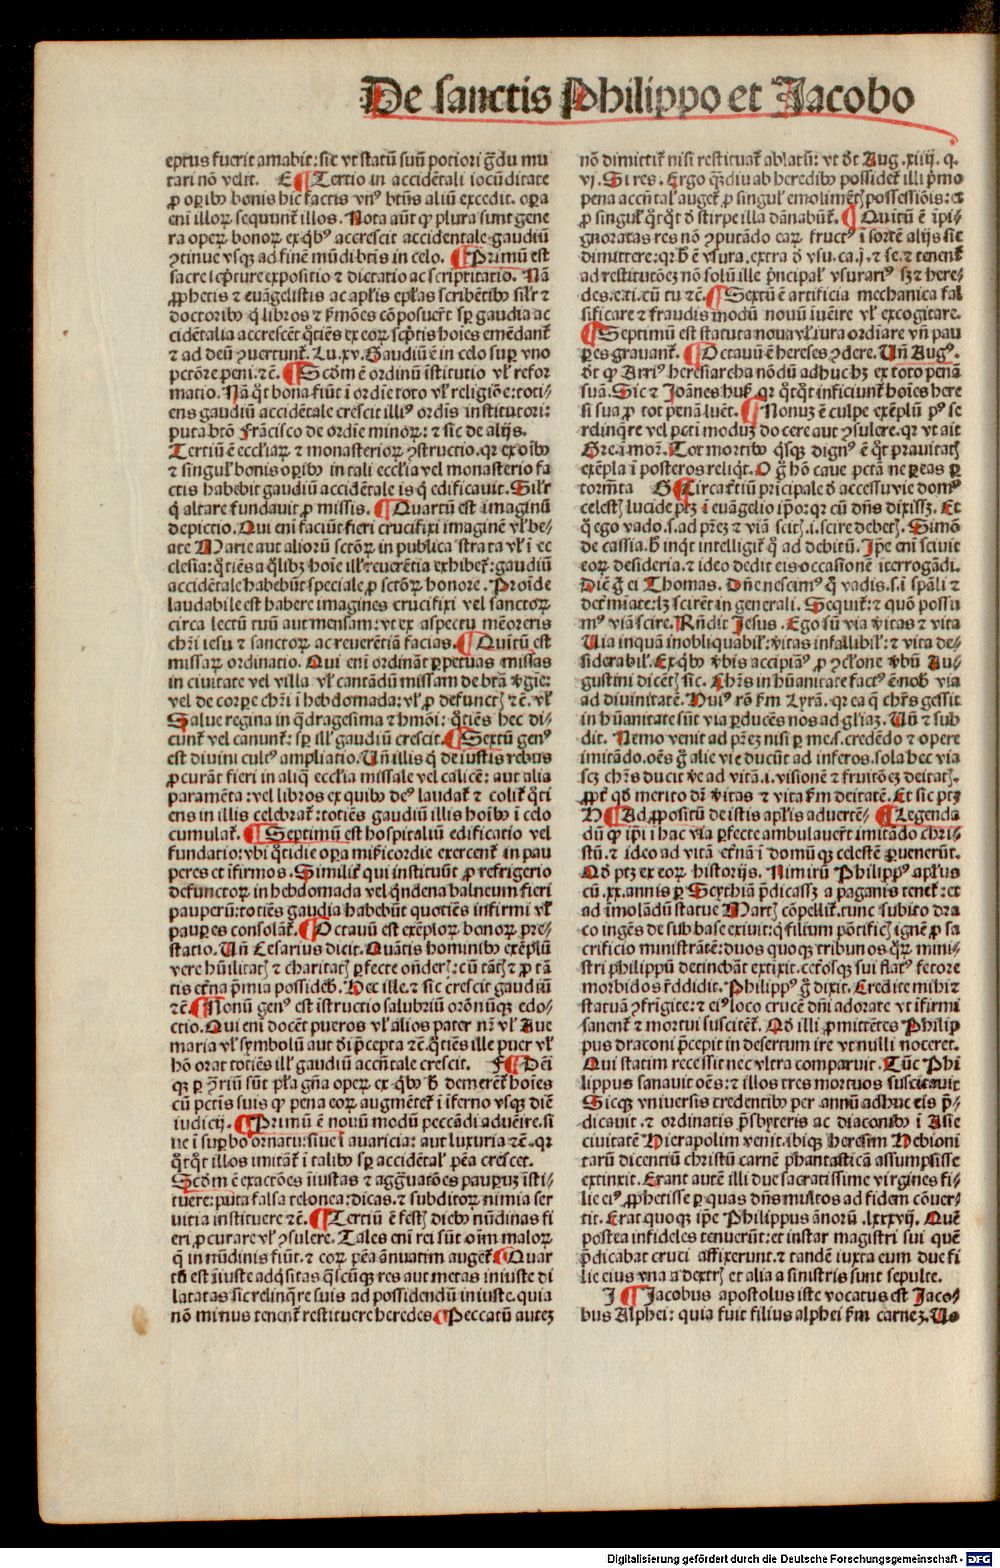 De sanctis Philippo et Jacobo
eptus fuerit amabit: sic vt statū suū potiori g̃du mu
tari nō velit. E ¶ Tertio in accidētali iocūditate
ꝓ oꝑibꝰ bonis hic factis vnꝰ bt̄us aliū excedit. oꝑa
em̄ illoꝝ sequunt̃ illos. Nota aūt ꝙ plura sunt gene
ra opeꝝ bonoꝝ ex qͥbꝰ accrescit accidentale gaudiū
ↄtinue vsqꝫ ad finē mūdi btis in celo. ¶ Primū est
sacre scpture expositio et dictatio ac scriptitatio. Nā
ꝓphetis et euāgelistis ac apl̃is epl̃as scribētibꝰ silr̃ et
doctoribꝰ qͥ libros et ẜmōes cōposuer̃t sꝑ gaudia ac
cidētalia accrescēt qͦtiēs ex eoꝝ scp̃tis hoies emēdant̃
et ad deū ↄuertunt̃. Lu.xv. Gaudiū ē in celo suꝑ vno
pctōre peni. et̃c. ¶ Scd̃m ē ordinū īstitutio vl̃ refor
matio. Nā qͦt bona fiūt ī ordīe toto vl̃ religiōe: toti-
ens gaudiū accidētale crescit illiꝰ ordīs institutori:
puta bt̃o Frācisco de ordīe minoꝝ: et sic de alijs.
Tertiū ē eccliaꝝ et monasterioꝝ ↄstructio. qꝛ ex oibꝰ
et singul̃ bonis oꝑibꝰ in tali ecclia vel monasterio fa
ctis habebit gaudiū accidētale is qͥ edificauit. Silr̃
qͥ altare fundauit ꝓ missis. ¶ Quartū est imaginū
depictio. Qui em̄ faciūt fieri crucifixi imaginē vl̃ be-
ate Marie aut alioꝝ sctōꝝ in publica strata vl̃ ī ec
clesia: qͦtiēs a qͥlibꝫ hoie ill̃ reuerētia exhibet̃: gaudiū
accidētale habebūt speciale ꝓ sctōꝝ honore. Proīde
laudabile est habere imagines crucifixi vel sanctoꝝ
circa lectū tuū aut mensam: vt ex aspectu mēoreris
chr̃i iesu et sanctoꝝ ac reuerētiā facias. ¶ Quītū est
missaꝝ ordinatio. Qui em̄ ordināt ꝑpetuas missas
in ciuitate vel villa vl̃ cantādū missam de bt̃a v̓gīe:
vel de corꝑe chr̃i ī hebdomada: vl̃ ꝓ defunctꝭ et̃c. vl̃
Salue regina in qͣdragesima et hmōi: qͦtiēs hec di-
cunt̃ vel canunt̃: sꝑ ill̃ gaudiū crescit. ¶ Sextū genꝰ
est diuini cultꝰ ampliatio. Vn̄ illis qͥ de iustis rebus
ꝓcurāt fieri in aliq̄ ecclia missale vel calicē: aut alia
paramēta: vel libros ex quibꝰ deꝰ laudat̃ et colit̃ qͦti
ens in illis celebrat̃: totiēs gaudiū illis hoibꝰ ī celo
cumulat̃. ¶ Septimū est hospitaliū edificatio vel
fundatio: vbi qͦtidie oꝑa mi͠cordie exercent̃ in pau
peres et īfirmos. Similit̃ qui instituūt ꝓ refrigerio
defunctoꝝ in hebdomada vel qͥndena balneum fieri
pauperū: totiēs gaudia habebūt quotiēs infirmi vl̃
pauꝑes consolāt̃. ¶ Octauū est exēploꝝ bonoꝝ pre-
statio. Vn̄ Cesarius dicit. Quātis hominibꝰ exēplū
vere hūilitatꝭ et charitatꝭ ꝑfecte on̄derꝭ: cū tātꝭ et ꝓ tā
tis et̓na p̄mia possidebꝭ. Hec ille. et sic crescit gaudiū
et̃c. ¶ Nonū genꝰ est īstructio salubriū orōnūqꝫ edo-
ctio. Qui em̄ docēt pueros vl̃ alios pater nr̃ vl̃ Aue
maria vl̃ symbolū aut dī p̄cepta et̃c. qͦtiēs ille puer vl̃
hō orat totiēs ill̃ gaudiū accn̄tale crescit. F ¶ Dēi
qꝫ ꝑ ↄ̄riū sūt pl̃a gn̄a opeꝝ ex qͥbꝰ ḣ demerēt̃ hoīes
cū pctīs suis ꝙ pena eoꝝ augmētet̃ ī īferno vsqꝫ diē
iudicij. ¶ Primū ē nouū modū peccādi adueīre. si
ue ī suꝑbo ornatu: siue ī auaricia: aut luxuria et̃c. qꝛ
qͦtqͦt illos imitāt̃ ī talibꝰ sꝑ accidētal̃ pēa crescet.
Scd̃m ē exactōes īiustas et aggͣuatōes pauꝑuꝫ īsti-
tuere: puta falsa telonea: dicas. et subditoꝝ nimia ser
uitia instituere et̃c. ¶ Tertiū ē festꝭ diebꝰ nūdinas fi
eri ꝓcurare vl̃ ↄsulere. Tales em̄ rei sūt oīm maloꝝ
q̄ in nūdinis fiūt. et eoꝝ pēa ānuatim auget̃. ¶ Quar
tū est īiuste adqͥsitas qͣscūqꝫ res aut metas iniuste di
latatas sic relinq̄re suis ad possidendū iniuste. quia
nō minus tenent̃ restituere heredes. ¶ Peccatū auteꝫ
nō dimittit̃ nisi restituat̃ ablatū: vt dt̄ Aug. xiiij. q.
vj. Si res. Ergo qͣꝫdiu ab heredibꝰ possidet̃ illi p̄mo
pena accn̄tal̃ auget̃ ꝓ singul̃ emolimētꝭ possessiōis: et
ꝓ singul̃ qͦtqͦt d̓ stirpe illa dānabūt̃. ¶ Quītū ē īpi-
gnoratas res nō ↄputādo eaꝝ fructꝰ ī sortē alijs sic
dimittere: qꝛ h̄ ē vsura. extra d̓ vsu. ca. j. et se. et tenent̃
ad restitutōeꝫ nō solū ille p̄ncipal̃ vsurariꝰ sꝫ et here-
des. e. ti. cū tu et̃c. ¶ Sextū ē artificia mechanica fal
sificare et fraudis modū nouū iuēire vl̃ excogitare.
¶ Septimū est statuta noua vl̃ iura ordīare vn̄ pau
ꝑes grauant̃. ¶ Octauū ē hereses ↄdere. Vn̄ Augꝰ.
dt̄ ꝙ Arriꝰ heresiarcha nōdū adhuc hꝫ ex toto penā
suā. Sic et Joānes huß. qꝛ qͦtqͦt inficiunt̃ hoīes here
si sua ꝓ tot penā luēt. ¶ Nonuꝫ ē culpe exēplū pꝰ se
relinq̄re vel pcti moduꝫ docere aut ↄsulere. qꝛ vt ait
Gre. ī mor. Tot mortibꝰ qͥsqꝫ dignꝰ ē qͦt prauitatꝭ
exēpla ī posteros reliqͥt. O g̊ hō caue pctā ne ꝑeas ꝑ
torm̄ta G ¶ Circa t̓tiū prīcipale d̓ accessu vie domꝰ
celestꝭ lucide ptꝫ ī euāgelio ip̄oꝝ qꝛ cū dn̄s dixissꝫ. Et
q̄ ego vado. s. ad pr̄eꝫ et viā scitꝭ. i. scire debetꝭ. Simō
de cassia. h̄ inqͥt intelligit̃ ꝙ ad debitū. Ip̄e em̄ sciuit
eoꝝ desideria. et ideo dedit eis occasionē īterrogādi.
Diē g̊ ei Thomas. Dn̄e nescimꝰ qͦ vadis. s. ī spāli et
det̓m̄iate: lꝫ sciret̄ in generali. Sequit̃: et quō possu
mꝰ viā scire. Rn̄dit Jesus. Ego sū via v̓itas et vita
Via inquā inobliquabil̃: v̓itas infallibil̃: et vita de-
siderabil̃. Ex qͥbꝰ v̓bis accipiāꝰ ꝓ ↄcl̄one v̓bū Au-
gustini dicētꝭ sic. Chr̄s in hūanitate factꝰ ē nob̄ via
ad diuinitatē. Huiꝰ rō ẜm Lyrā. qꝛ ea q̄ chr̄s gessit
in hūanitate sūt via ꝑducēs nos ad gl̄iaꝫ. Vn̄ et sub
dit. Nemo venit ad pr̄eꝫ nisi ꝑ me. s. credēdo et opere
imitādo. oēs g̊ alie vie ducūt ad inferos. sola hec via
scꝫ chr̄s ducit v̓e ad vitā. i. visionē et fruitōeꝫ deitatꝭ.
ꝓpt̃ qd̄ merito dr̄ v̓itas et vita ẜm deitatē. Et sic ptꝫ
H ¶ Ad ꝓpositū de istis apl̄is aduertē- ¶ Legenda
dū ꝙ ip̄i ī hac via ꝑfecte ambulauer̃t imitādo chri-
stū. et ideo ad vitā et̓nā ī domūqꝫ celestē ꝑuenerūt.
Qd̄ ptꝫ ex eoꝝ historijs. Nimirū Philippꝰ apl̄us
cū. xx. annis ꝑ Scythiā p̄dicassꝫ a paganis tenet̃: et
ad īmolādū statue Martꝭ cōpellit̃. tunc subito dra
co ingēs de sub base exiuit: qͥ filium pōtificꝭ ignē ꝓ sa
crificio ministrātē: duos quoqꝫ tribunos qͦꝝ mini-
stri philippū detinebāt extīxit. cet̓osqꝫ sui flatꝰ fetore
morbidos r̄ddidit. Philippꝰ g̊ dixit. Credite mihi et
statuā ↄfrīgite: et eiꝰ loco crucē dn̄i adorate vt īfirmi
sanent̃ et mortui suscitēt̃. Qd̄ illi ꝓmittētes Philip
pus draconi p̄cepit in desertum ire vt nulli noceret.
Qui statim recessit nec vltra comparuit. Tūc Phi
lippus sanauit oēs: et illos tres mortuos suscitauit
Sicqꝫ vniuersis credentibꝰ per annū adhuc eis p̄-
dicauit. et ordinatis p̄sbyteris ac diaconibꝰ ī Asie
ciuitatē Hierapolim venit. ibiqꝫ heresim Hebioni
tarū dicentiū christū carnē phantasticā assumpsisse
extinxit. Erant autē illi due sacratissime virgines fi-
lie eiꝰ ꝓphetisse ꝑ quas dn̄s multos ad fidem cōuer-
tit. Erat quoqꝫ ip̄e Philippus ānorū. lxxxvij. Quē
postea infideles tenuerūt: et instar magistri sui quē
p̄dicabat cruci affixerunt. et tandē iuxta eum due fi
lie eius vna a dextrꝭ et alia a sinistris sunt sepulte.
J ¶ Jacobus apostolus iste vocatus est Jaco-
bus Alphei: quia fuit filius alphei ẜm carneꝫ. Vo
Digitalisierung gefördert durch die Deutsche Forschungsgemeinschaft - DFG